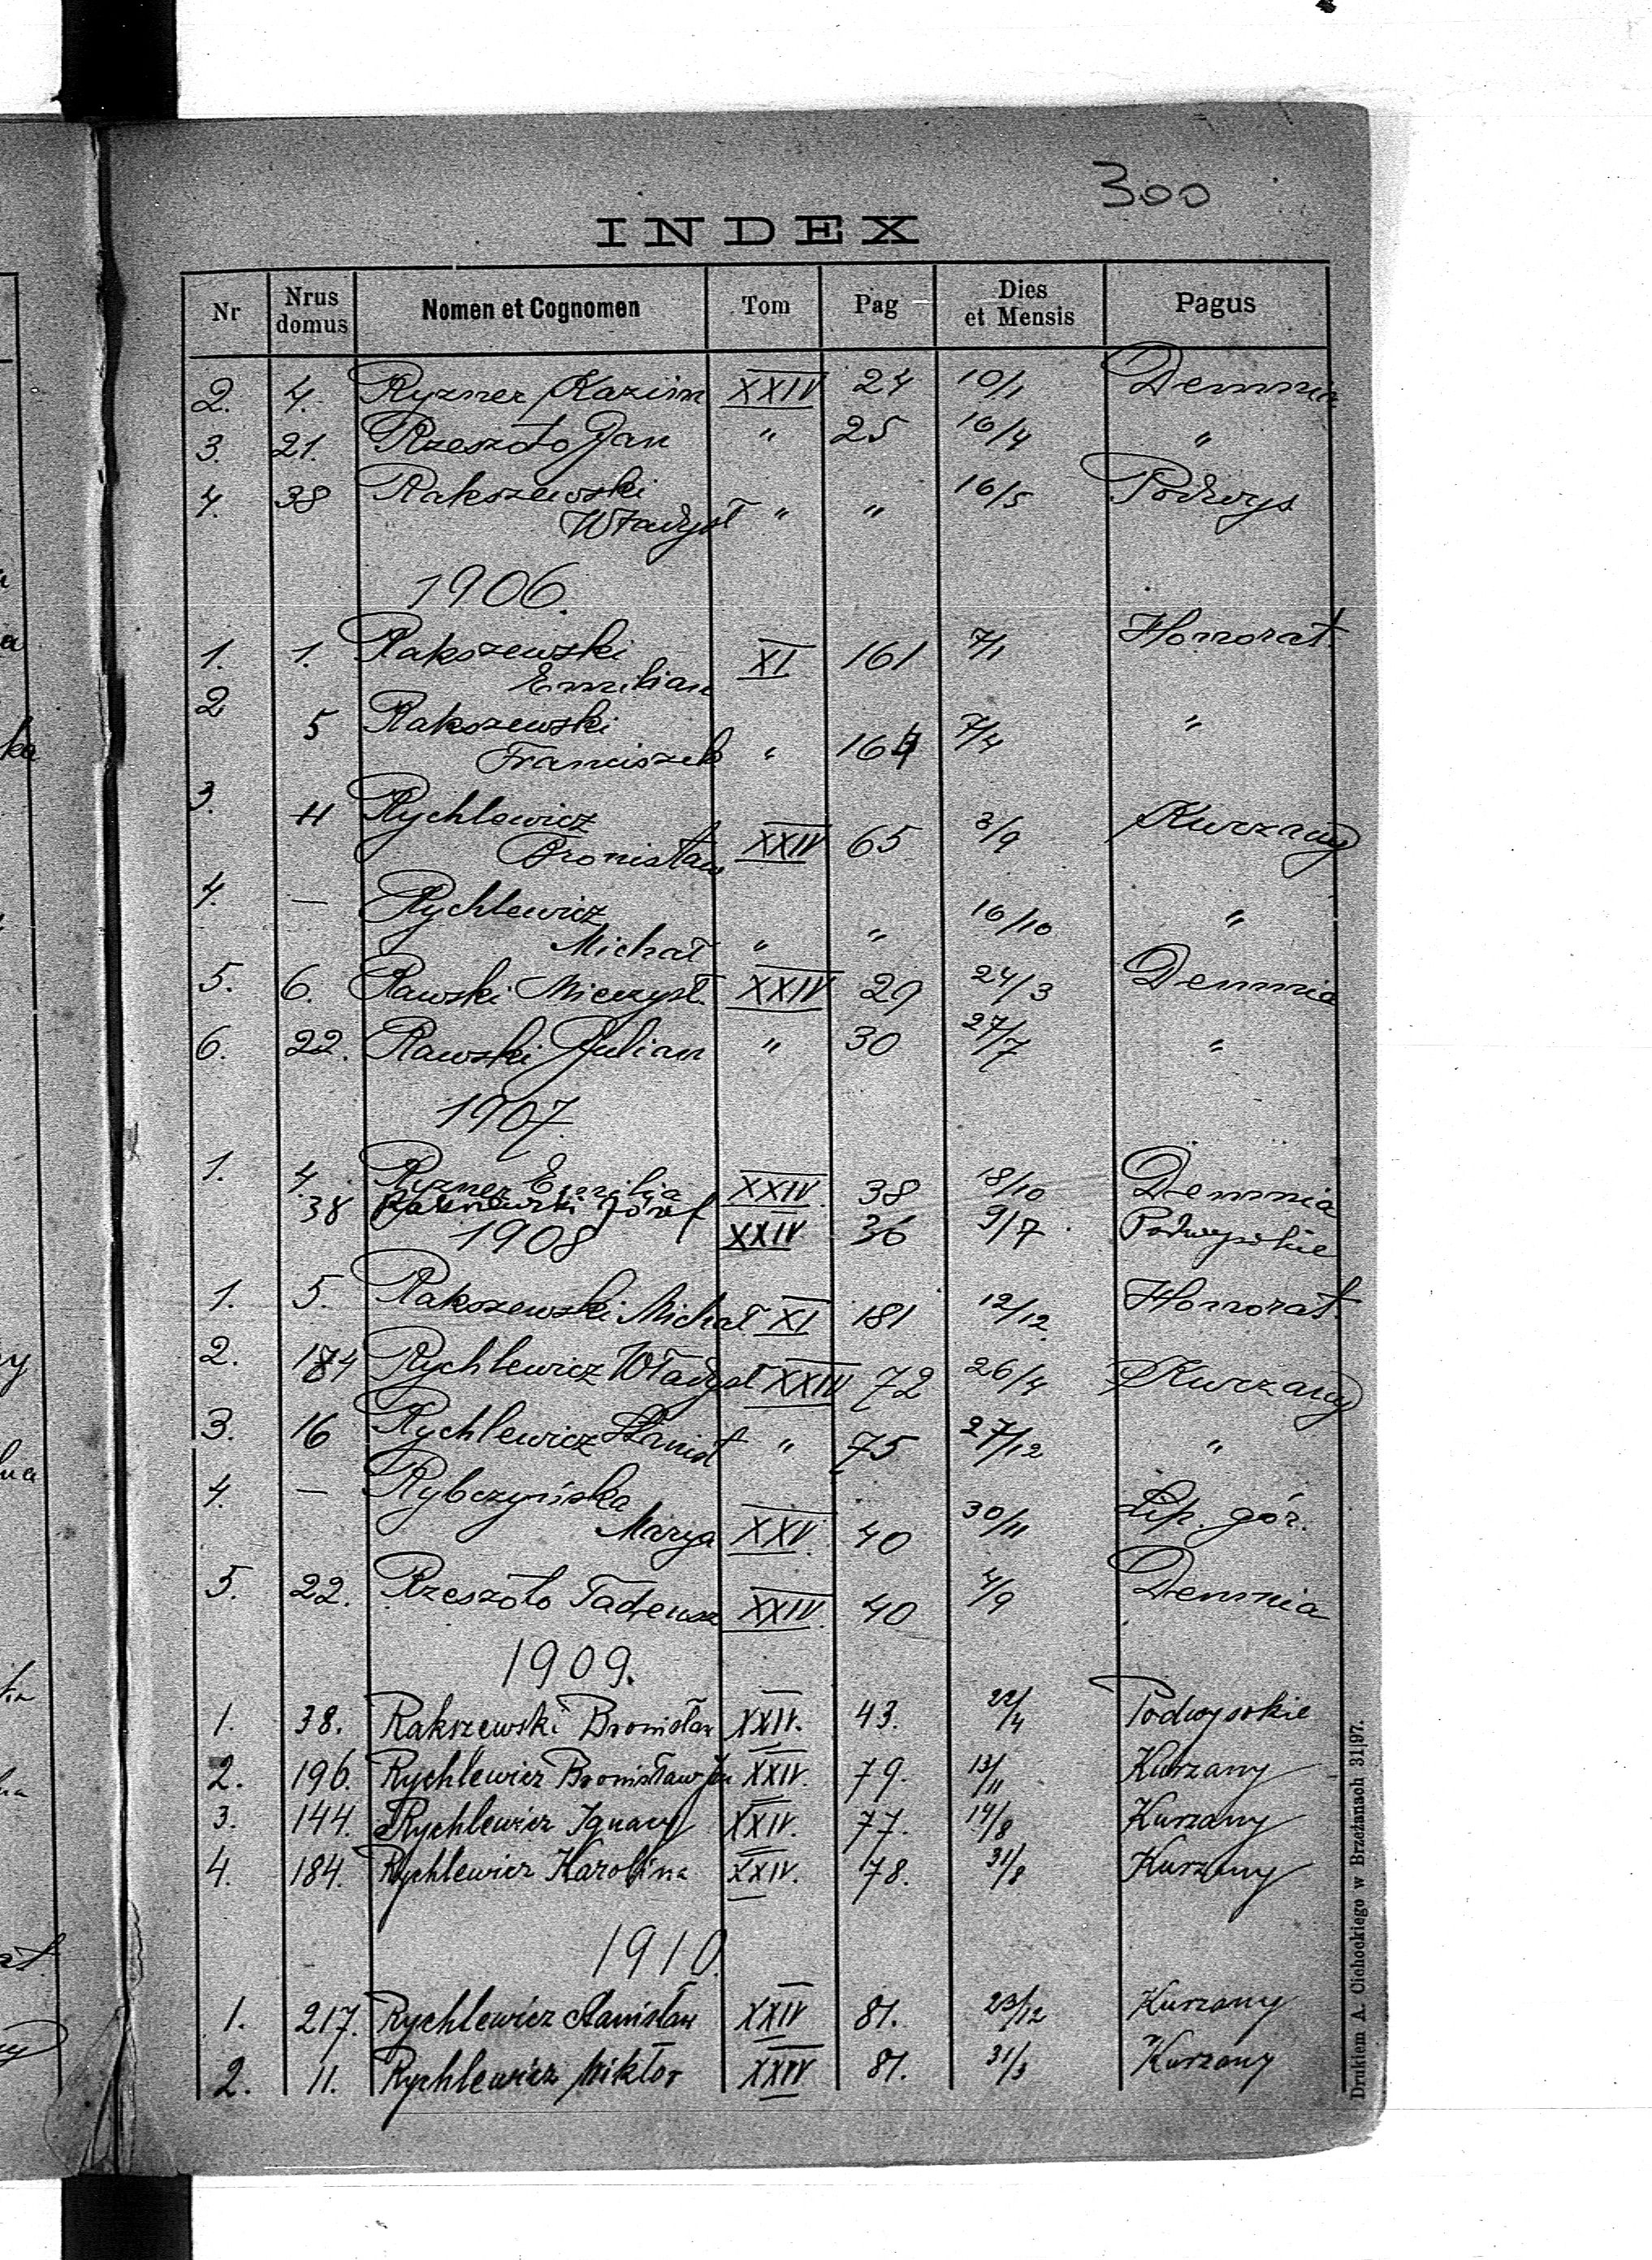 300
INDEX
Nr Nrus domus Nomen et Cognomen Tom Pag Dies et Mensis Pagus
2. 4. Ryzner Kazim XXIV 24 10/1 Demnia
3. 21. Rzeszoto Jan " 25 16/4 "
4. 38 Rakszewski
Władysł " " 16/5 Podwys
1906.
1. 1. Rakszewski
Emilian XI 161 7/1 Honorat.
2 5 Rakszewski
Franciszek " 164 7/4 "
3. 11 Rychlewicz
Bronisław XXIV 65 3/9 Kurzany
4. — Rychlewicz
Michał " " 16/10 "
5. 6. Rawski Mieczysł. XXIV 29 24/3 Demnia
6. 22. Rawski Julian " 30 27/7 "
1907.
1. 4. Ryzner Emilia XXIV. 38 18/10 Demnia
38 Rakszewski Józef XXIV 36 9/7. Podwysokie
1908
1. 5. Rakszewski Michał XI 181 12/12. Honorat.
2. 184 Rychlewicz Władysł XXIV 72 26/4 Kurzany
3. 16 Rychlewicz Stanisł " 75 27/12 "
4. — Rybczyńska
Marya XXV. 40 30/11 Lip. gór.
5. 22. Rzeszoto Tadeusz XXIV. 40 4/9 Demnia
1909.
1. 38. Rakszewski Bronisław XXIV. 43. 22/4 Podwysokie
2. 196. Rychlewicz Bronisław Jan XXIV. 79. 13/11 Kurzany
3. 144. Rychlewicz Ignacy XXIV. 77. 14/8 Kurzany
4. 184. Rychlewicz Karolina XXIV. 78. 31/8 Kurzany
1910.
1. 217. Rychlewicz Stanisław XXIV 81. 23/12 Kurzany
2. 11. Rychlewicz Wiktor XXIV 81. 31/3 Kurzany
Drukiem A. Cichockiego w Brzeżanach 31|97.